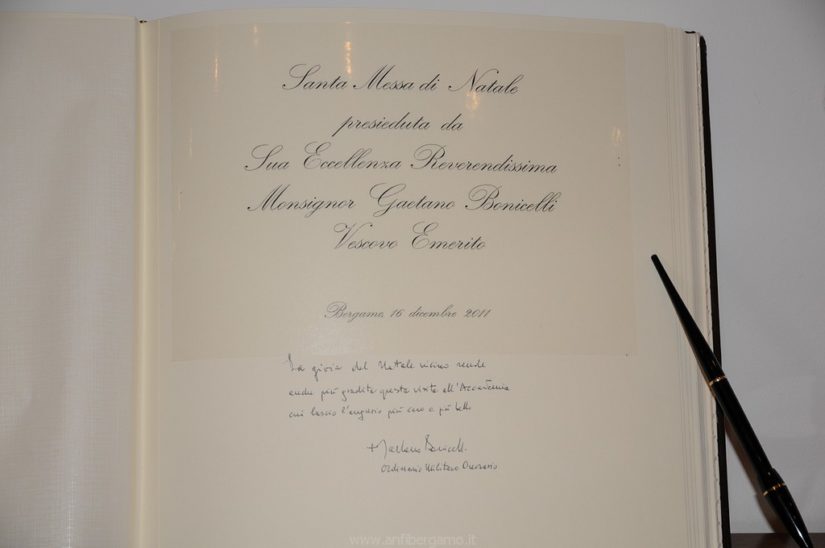 Santa Messa di Natale
presieduta da
Sua Eccellenza Reverendissima
Monsignor Gaetano Bonicelli
Vescovo Emerito
Bergamo, 16 dicembre 2011
La gioia del Natale vicino rende
anche più gradita questa visita all'Accademia
cui lascio l'augurio più caro e più bello
+ Gaetano Bonicelli
Ordinario Militare Onorario
www.anfibergamo.it